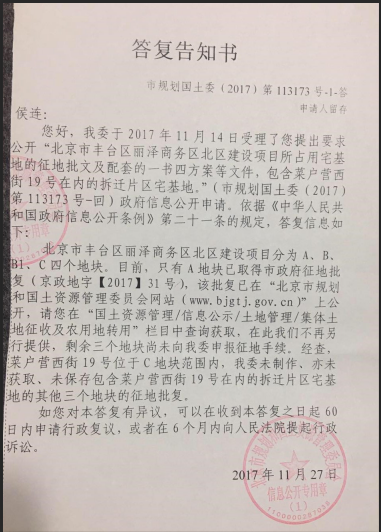 答复告知书
市规划国土委（2017）第 113173 号-1-答
申请人留存
侯连：
您好，我委于 2017 年 11 月 14 日受理了您提出要求
公开“北京市丰台区丽泽商务区北区建设项目所占用宅基
地的征地批文及配套的一书四方案等文件，包含菜户营西
街 19 号在内的拆迁片区宅基地。”（市规划国土委（2017）
第 113173 号-回）政府信息公开申请。依据《中华人民共
和国政府信息公开条例》第二十一条的规定，答复信息如
下：
北京市丰台区丽泽商务区北区建设项目分为 A、B、
B1、C 四个地块。目前，只有 A 地块已取得市政府征地批
复（京政地字【2017】31 号），该批复已在“北京市规划
和国土资源管理委员会网站（www.bjgtj.gov.cn）”上公
开，请您在“国土资源管理/信息公示/土地管理/集体土
地征收及农用地转用”栏目中查询获取，在此我们不再另
行提供，剩余三个地块尚未向我委申报征地手续。经查，
菜户营西街 19 号位于 C 地块范围内，我委未制作、亦未
获取、未保存包含菜户营西街 19 号在内的拆迁片区宅基
地的其他三个地块的征地批复。
如您对本答复有异议，可以在收到本答复之日起 60
日内申请行政复议，或者在 6 个月内向人民法院提起行政
诉讼。
2017 年 11 月 27 日
信息公开专用章
（1）